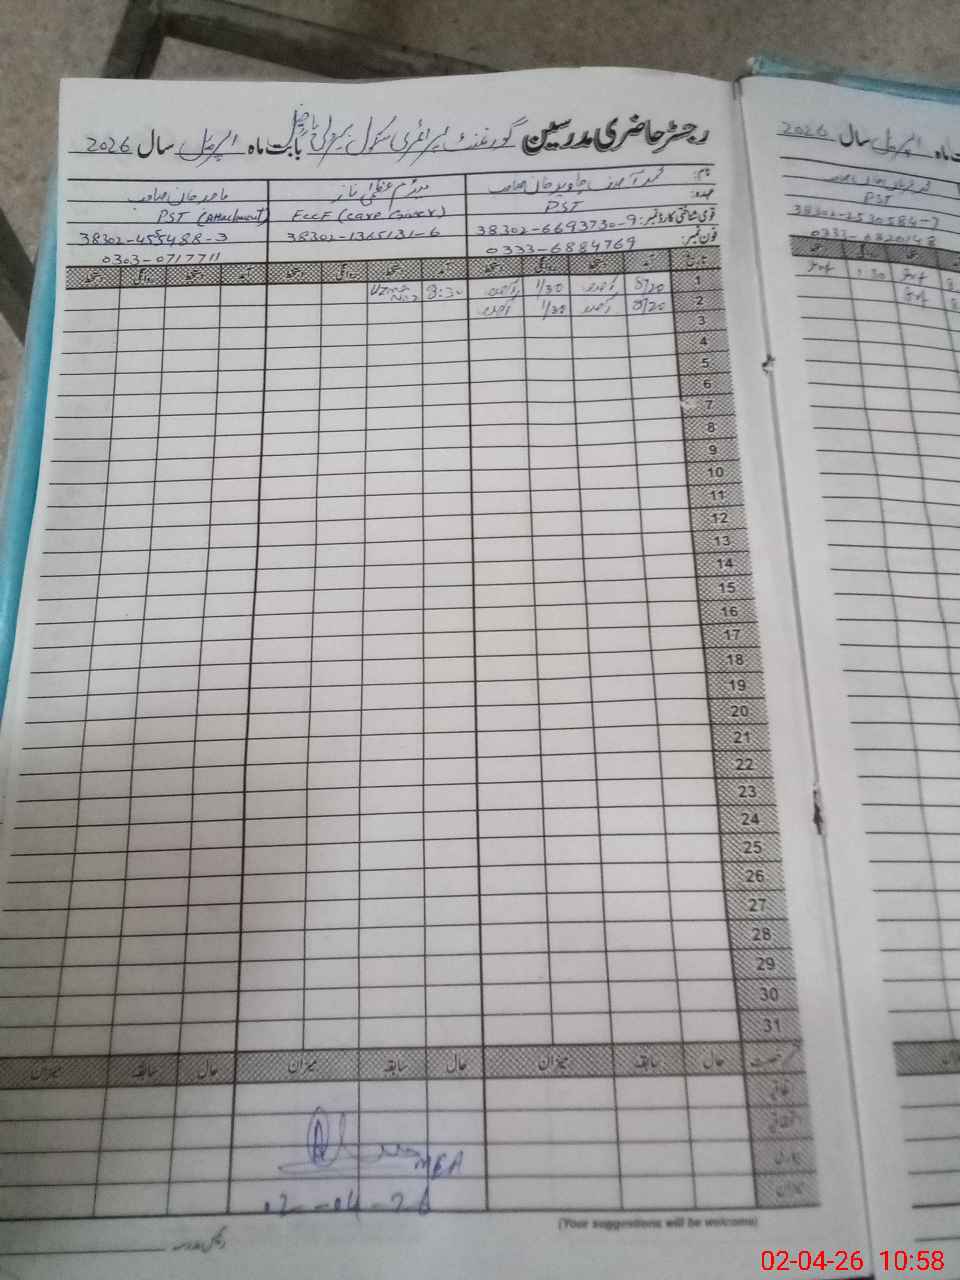 رجسٹر حاضری مدرسین گورنمنٹ پرائمری سکول بابت ماہ اپریل سال 2026
نام: محمد آصف جاوید خان صاحب میڈم عظمیٰ ناز ماجد خان صاحب
عہدہ: PST ECCE (Care Giver) PST (Attachment)
قومی شناختی کارڈ نمبر: 38302-6693730-9 38302-1365131-6 38302-455488-3
فون نمبر: 0333-6884769 0303-0717711
تاریخ آمد دستخط روانگی دستخط آمد دستخط روانگی دستخط آمد دستخط روانگی دستخط
1 8/20 1/30 8:30 Uzma Naz
2 8/20 1/30
3
4
5
6
7
8
9
10
11
12
13
14
15
16
17
18
19
20
21
22
23
24
25
26
27
28
29
30
31
رخصت حال سابقہ میزان حال سابقہ میزان حال سابقہ میزان
اتفاقیہ
بیماری
MEA
02-04-26
(Your suggestions will be welcome)
اپریل سال 2026
PST
38302-2530584-7
0333-6820148
1:30
02-04-26 10:58